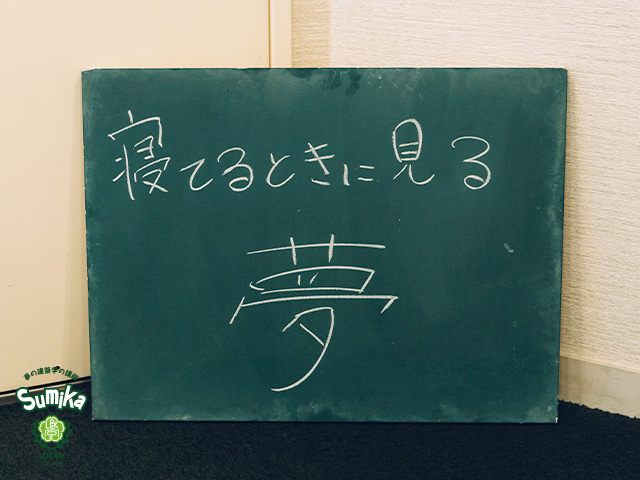 寝てるときに見る
夢
夢の建築学の講義
Sumika